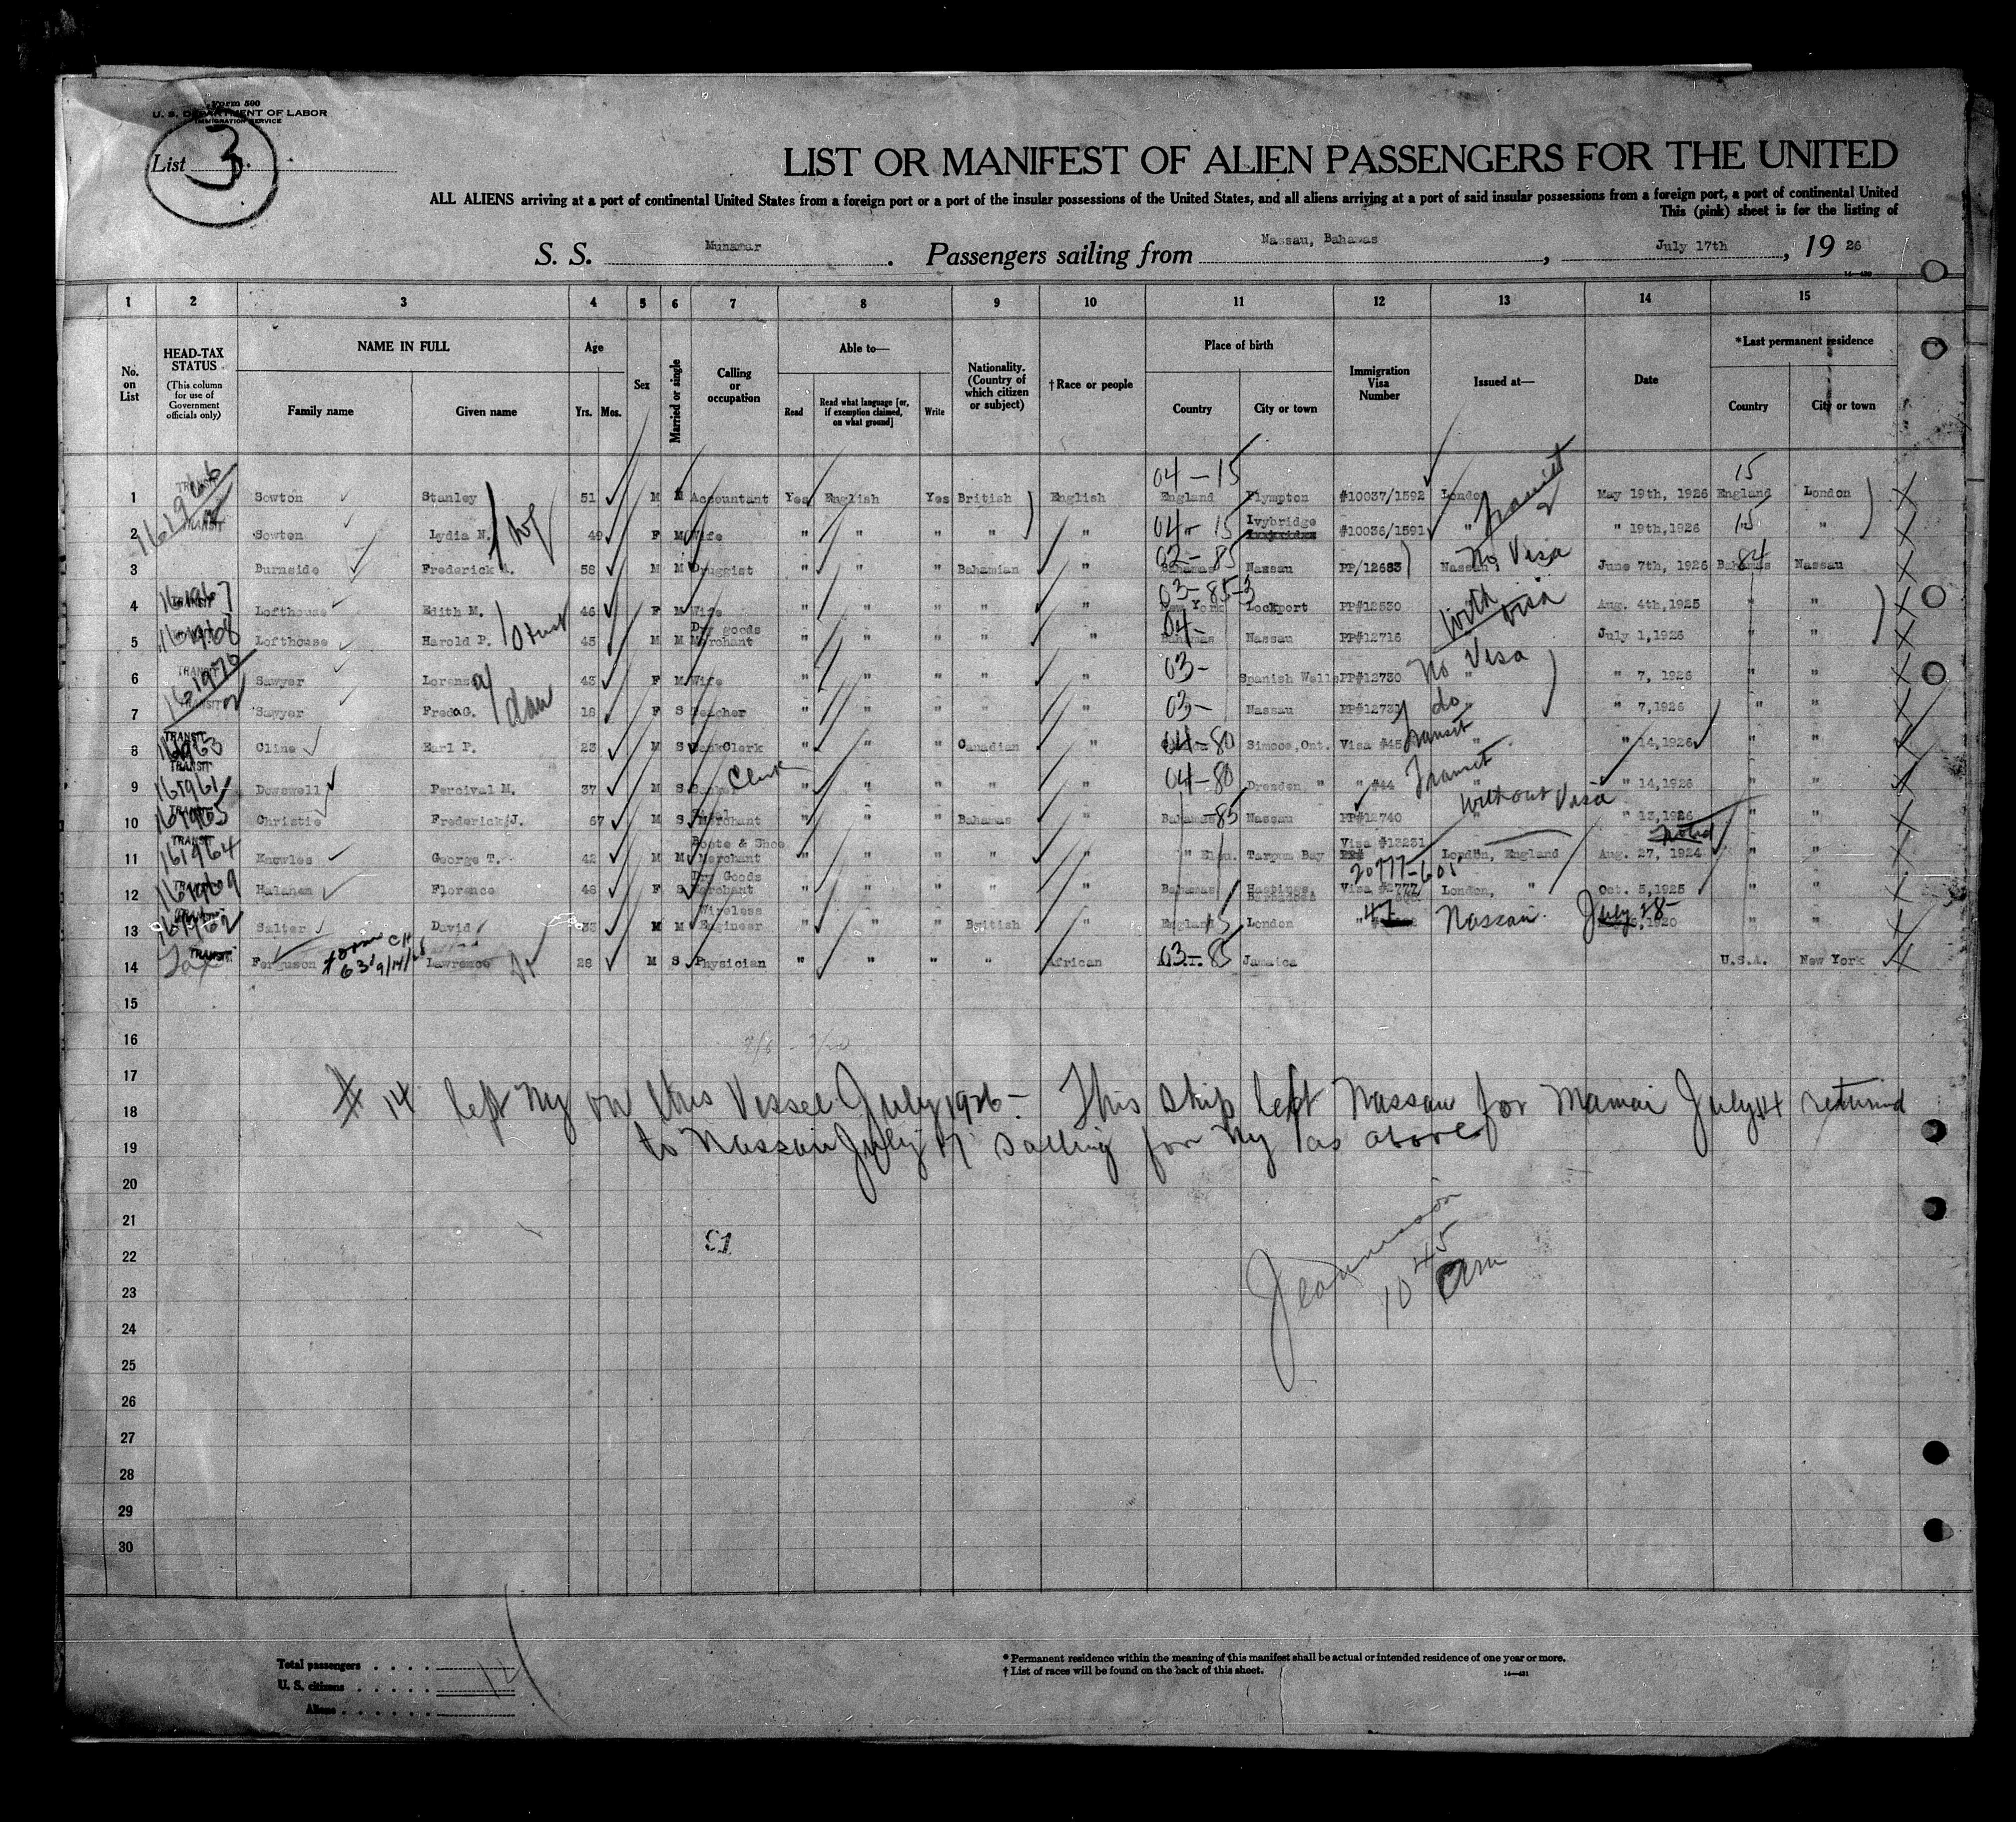 Form 500
U. S. DEPARTMENT OF LABOR
IMMIGRATION SERVICE
List 3
LIST OR MANIFEST OF ALIEN PASSENGERS FOR THE UNITED
ALL ALIENS arriving at a port of continental United States from a foreign port or a port of the insular possessions of the United States, and all aliens arriving at a port of said insular possessions from a foreign port, a port of continental United
This (pink) sheet is for the listing of
S. S. Munamar. Passengers sailing from Nassau, Bahamas, July 17th, 19 26
1 2 3 4 5 6 7 8 9 10 11 12 13 14 15
No. on List
HEAD-TAX STATUS (This column for use of Government officials only)
NAME IN FULL Family name Given name
Age Yrs. Mos.
Sex
Married or single
Calling or occupation
Able to— Read Read what language [or, if exemption claimed, on what ground] Write
Nationality. (Country of which citizen or subject)
†Race or people
Place of birth Country City or town
Immigration Visa Number
Issued at—
Date
*Last permanent residence Country City or town
04-15 15
1 TRANSIT Sowton Stanley 51 M M Accountant Yes English Yes British English England Plympton #10037/1592 London Transit May 19th, 1926 England London
2 TRANSIT Sowton Lydia N. 49 F M Wife " " " " " 04-15 Ivybridge #10036/1591 " " 19th, 1926 15 "
3 Burnside Frederick A. 58 M M Druggist " " " Bahamian " 02-85 Bahamas Nassau PP/12683 Nassau No Visa June 7th, 1926 Bahamas 84 Nassau
4 161967 Lofthouse Edith M. 46 F M Wife " " " " " 03-85-3 New York Lockport PP#12530 With Visa Aug. 4th, 1925 " "
5 161968 Lofthouse Harold P. 45 M M Dry goods Merchant " " " " " 04- Bahamas Nassau PP#12716 July 1, 1926 " "
6 161970 TRANSIT Sawyer Lorenza 43 F M Wife " " " " " 03- Spanish Wells PP#12730 No Visa " " 7, 1926 " "
7 TRANSIT Sawyer Freda G. 18 F S Teacher " " " " 03- Nassau PP#12731 do " 7, 1926 " "
8 TRANSIT 161963 Cline Earl P. 23 M S Bank Clerk " " " Canadian " 04-80 Simcoe, Ont. Visa #45 Transit " " 14, 1926 " "
9 TRANSIT 161961 Dowswell Percival M. 37 M S Banker Clerk " " " " " 04-80 Dresden, " " #44 Transit " 14, 1926 " "
10 TRANSIT 161965 Christie Frederick J. 67 M S Merchant " " " Bahamas " Bahamas 85 Nassau PP#12740 Without Visa " " 13, 1926 " "
11 TRANSIT 161964 Knowles George T. 42 M M Boots & Shoe Merchant " " " " " " Eleu. Tarpum Bay Visa #13231 London, England Aug. 27, 1924 " "
20777-605
12 161969 Halanen Florence 46 F S Dry Goods Merchant " " " " " Bahamas Hastings, Barbadoes Visa #2777 London, " Oct. 5, 1925 " "
13 161962 Salter David 33 M M Wireless Engineer " " " British " England 15 London " 47 Nassau July 18 " "
14 TRANSIT Ferguson Lawrence Dr 28 M S Physician " " " " African 03-85 Jamaica U.S.A. New York
15
16
17
# 14 left NY on this Vessel July 1926 - This ship left Nassau for Miami July 14 returned
18
to Nassau July 17 sailing for NY as above
19
20
21
91
22
10 45 am
23
24
25
26
27
28
29
30
Total passengers . . . . 14
U. S. citizens . . . . .
Aliens . . . . . .
* Permanent residence within the meaning of this manifest shall be actual or intended residence of one year or more.
† List of races will be found on the back of this sheet.
14—431